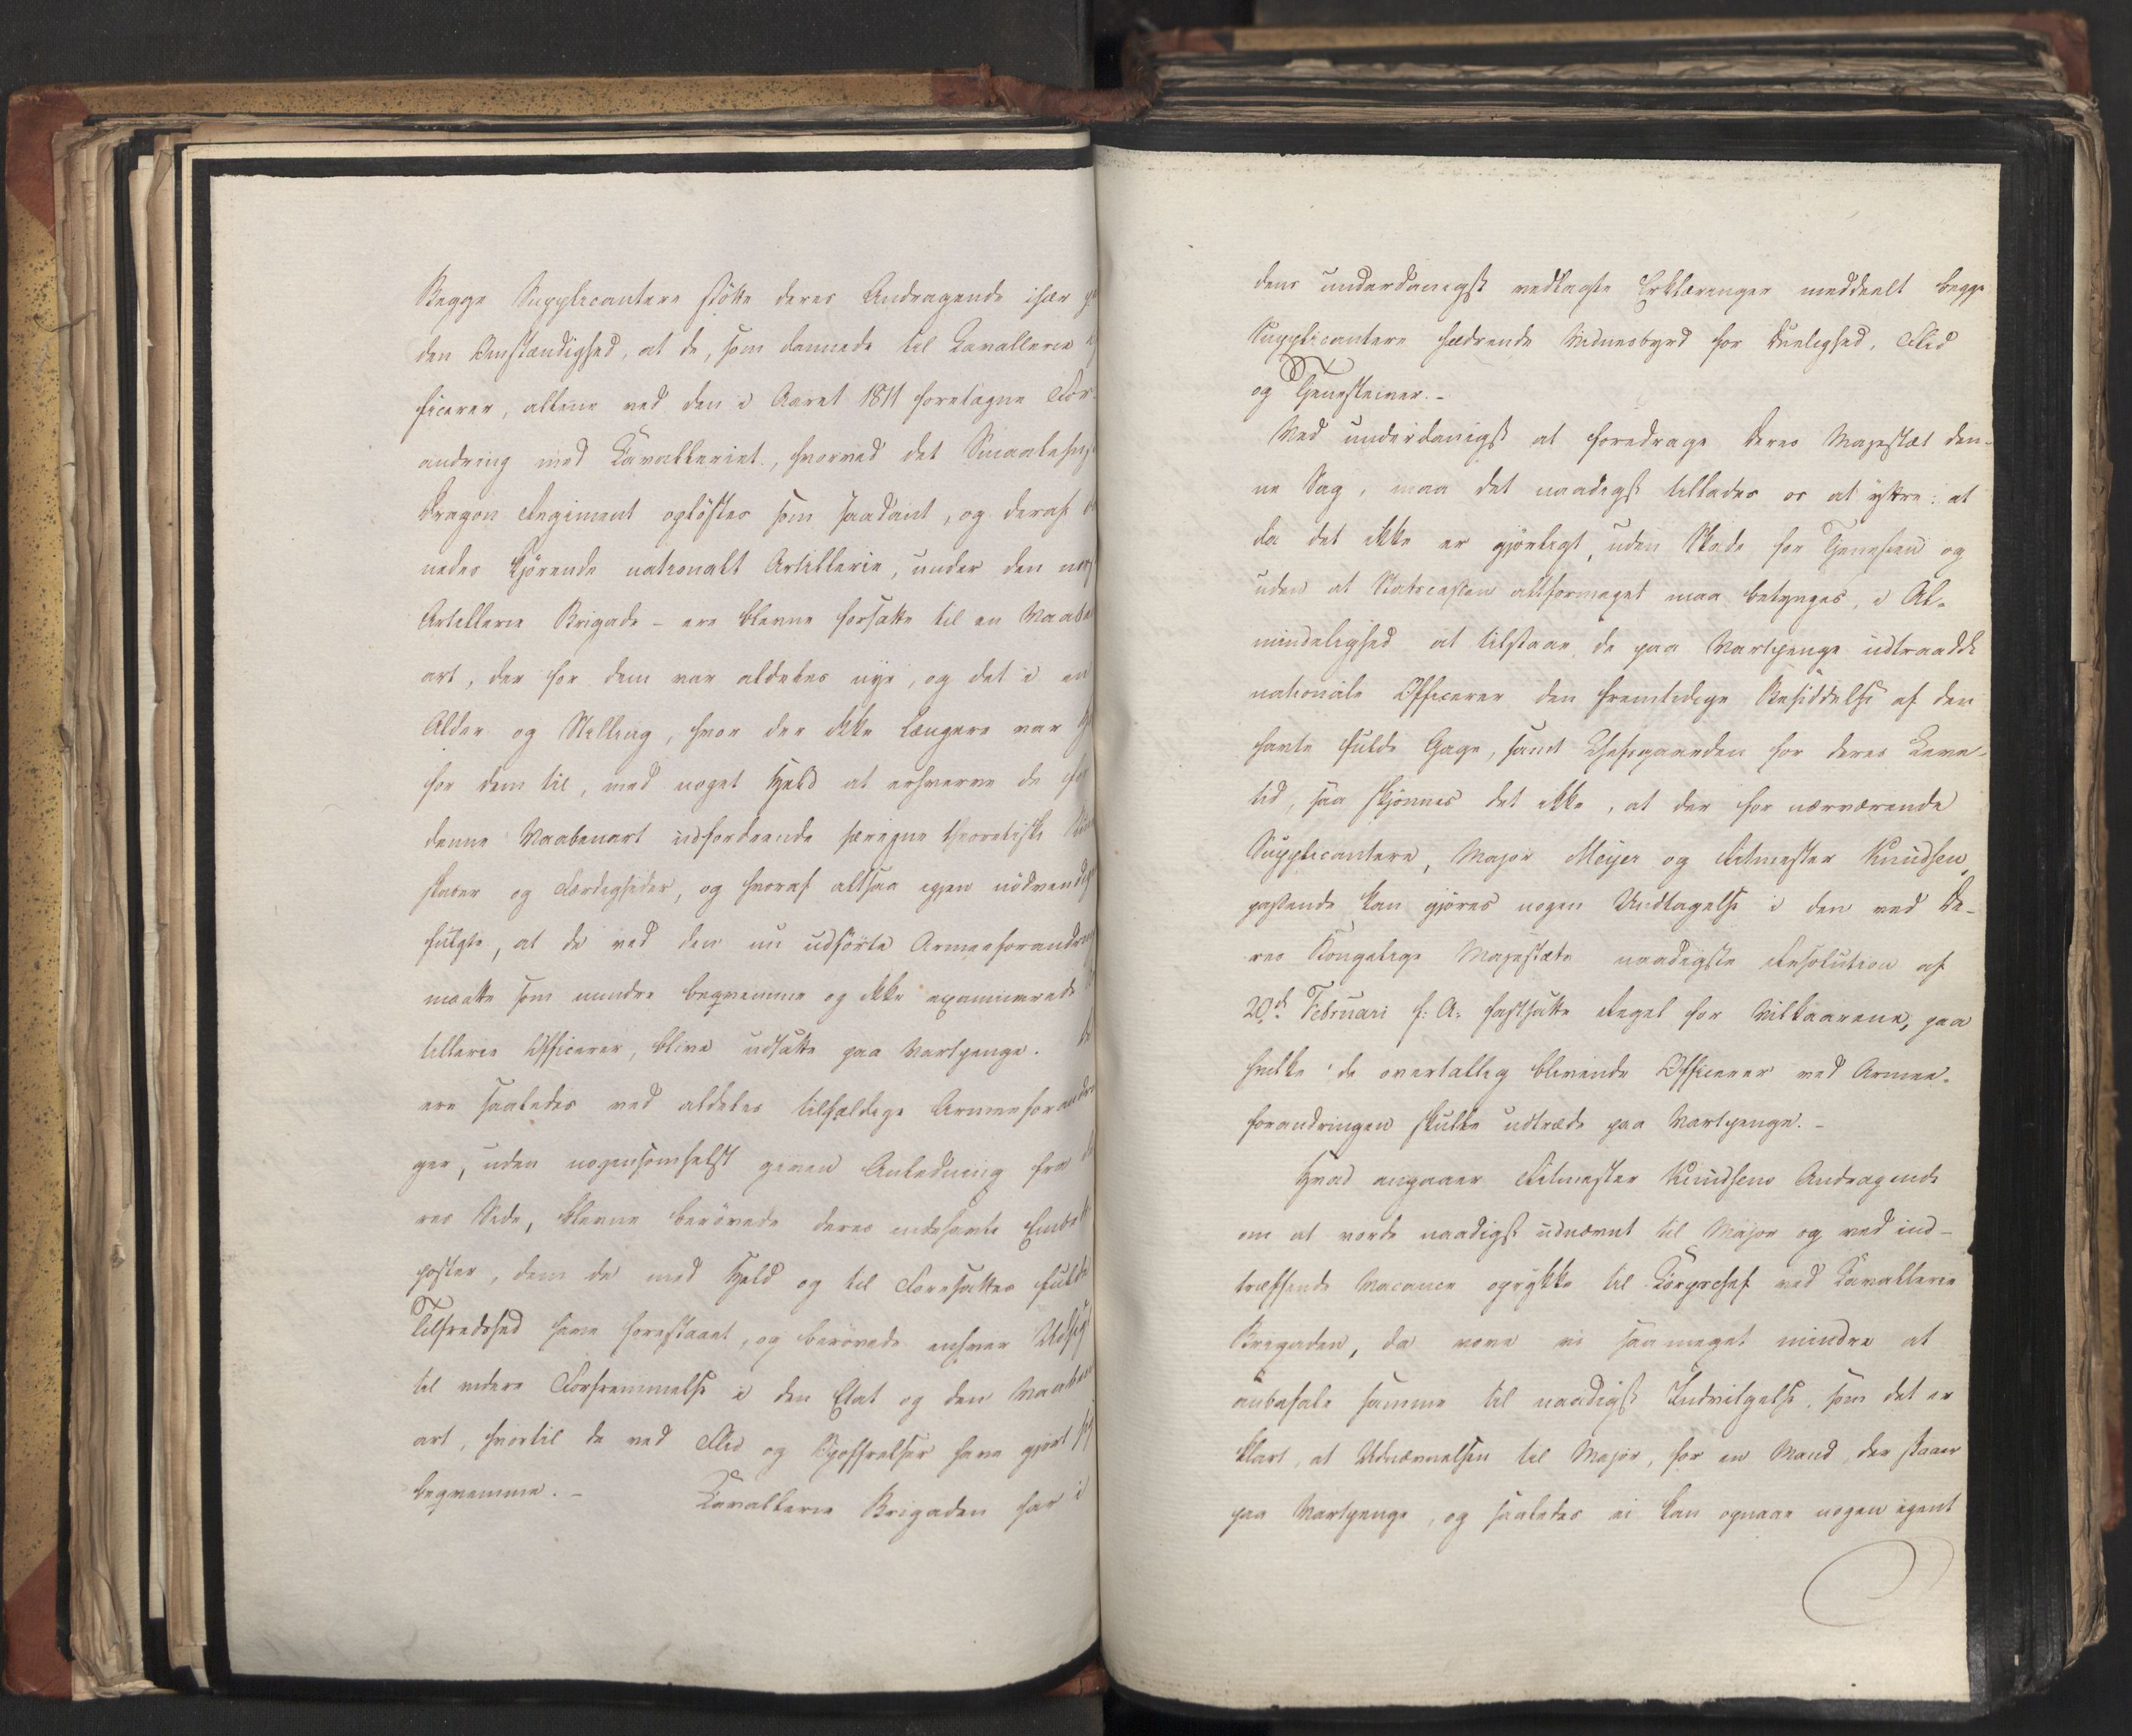 Begge Supplicantere støtte deres Andragende især
den Omstændighed, at de, som dannede til Cavallerie
ficerer, allene ved den i Aaret 1811 foretagne For-
andring med Cavalleriet, hvorved det Smaalehnske
Dragon Regiment opløstes som saadant, og deraf
nedes kjørende nationalt Artillerie, under den
Artillerie Brigade - ere blevne forsatte til en Vaaben
art, der for dem var aldeles nye, og det i en
Alder og Stilling, hvor der ikke længere var
for dem til, med noget Held at erhverve de
denne Vaabenart udfordrende særegne theoretiske
skaber og Færdigheder, og hvoraf altsaa igjen nødvendig
fulgte, at de ved den nu udførte Armeeforandring
maatte som mindre beqvemme og ikke examinerede
tillerie Officerer, blive udsatte paa Vartpenge.
ere saaledes ved aldeles tilfældige Armeeforandrin
ger, uden nogensomhelst given Anledning fra
res Side, blevne berøvede deres indehavte Embeds
poster, dem de med Held og til Foresattes fulde
Tilfredshed have forestaaet, og berøvede enhver Udsigt
til videre Forfremmelse i den Etat og den Vaaben
art, hvortil de ved Flid og Opoffrelser have gjort sig
beqvemme. - Cavallerie Brigaden har i
dens underdanigst vedlagte Erklæringer meddeelt begge
Supplicantere hædrende Vidnesbyrd for Duelighed, Flid
og Tjenesteiver. -
Ved underdanigst at foredrage Deres Majestæt den-
ne Sag, maa det naadigst tillades os at yttre: at
da det ikke er gjørligt, uden Skade for Tjenesten og
uden at Statscassen altformeget maa betynges, i Al-
mindelighed at tilstaae de paa Vartpenge udtraadte
nationale Officerer den fremtidige Besiddelse af den
havte fulde Gage, samt Chefsgaarden for deres Leve-
tid, saa skjønnes det ikke, at der for nærværende
Supplicantere, Major Meyer og Ritmester Knudsen,
passende kan gjøres nogen Undtagelse i den ved De-
res Kongelige Majestæts naadigste Resolution af
20de Februari f: A: fastsatte Regel for Vilkaarene, paa
hvilke de overtallig blivende Officerer ved Armee-
forandringen skulle udtræde paa Vartpenge. -
Hvad angaaer Ritmester Knudsens Andragende
om at vorde naadigst udnævnt til Major og ved ind-
træffende Vacance oprykke til Corpschef ved Cavallerie
Brigaden, da vove vi saameget mindre at
anbefale samme til naadigst Indvilgelse, som det er
klart, at Udnævnelsen til Major, for en Mand, der staaer
paa Vartpenge, og saaledes ei kan opnaae nogen egent